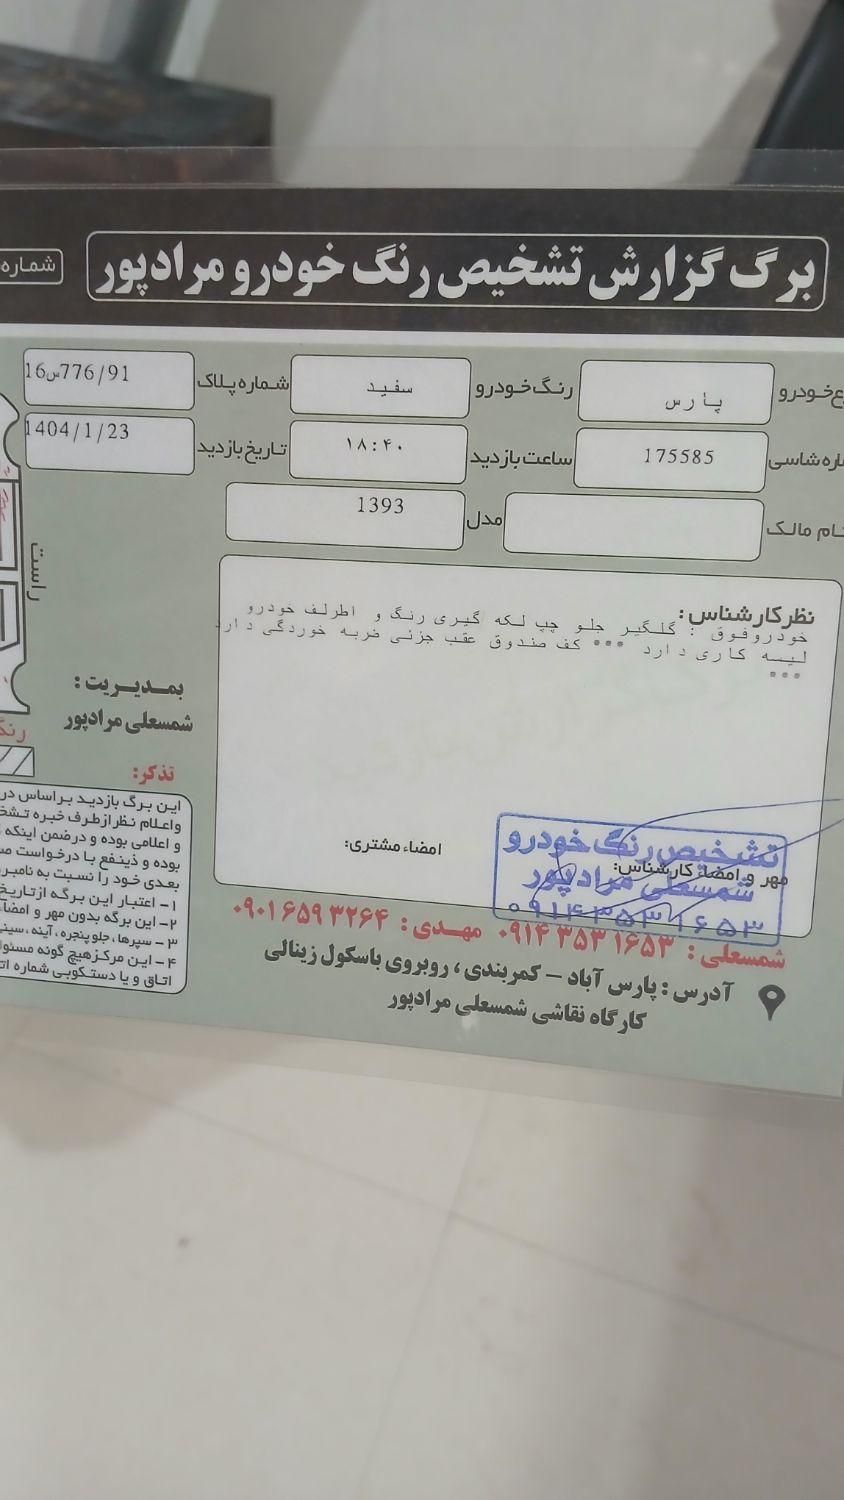 برگ گزارش تشخیص رنگ خودرو مرادپور
شماره
ع خودرو پارس رنگ خودرو سفید شماره پلاک 16س776/91
اره شاسی 175585 ساعت بازدید ۱۸:۴۰ تاریخ بازدید 1404/1/23
ام مالک مدل 1393
نظر کارشناس:
خودروفوق : گلگیر جلو چپ لکه گیری رنگ و اطرلف خودرو
لیسه کاری دارد *** کف صندوق عقب جزئی ضربه خوردگی دارد
***
راست
بمدیریت:
شمسعلی مرادپور
رنگ
تذکر:
این برگ بازدید براساس در
واعلام نظر ازطرف خبره تشخ
و اعلامی بوده و درضمن اینکه
بوده و ذینفع با درخواست
بعدی خود را نسبت به نامبر
۱- اعتبار این برگه از تاریخ
۲- این برگه بدون مهر و امضاء
۳- سپرها، جلو پنجره، آینه، سینی
۴- این مرکز هیچ گونه مسئول
اتاق و یا دستکوبی شماره ات
امضاء مشتری:
مهر و امضاء کارشناس:
تشخیص رنگ خودرو
شمسعلی مرادپور
۰۹۱۴۳۵۳۱۶۵۳
شمسعلی: ۰۹۱۴ ۳۵۳ ۱۶۵۳ مهدی: ۰۹۰۱ ۶۵۹ ۳۲۶۴
آدرس: پارس آباد – کمربندی، روبروی باسکول زینالی
کارگاه نقاشی شمسعلی مرادپور